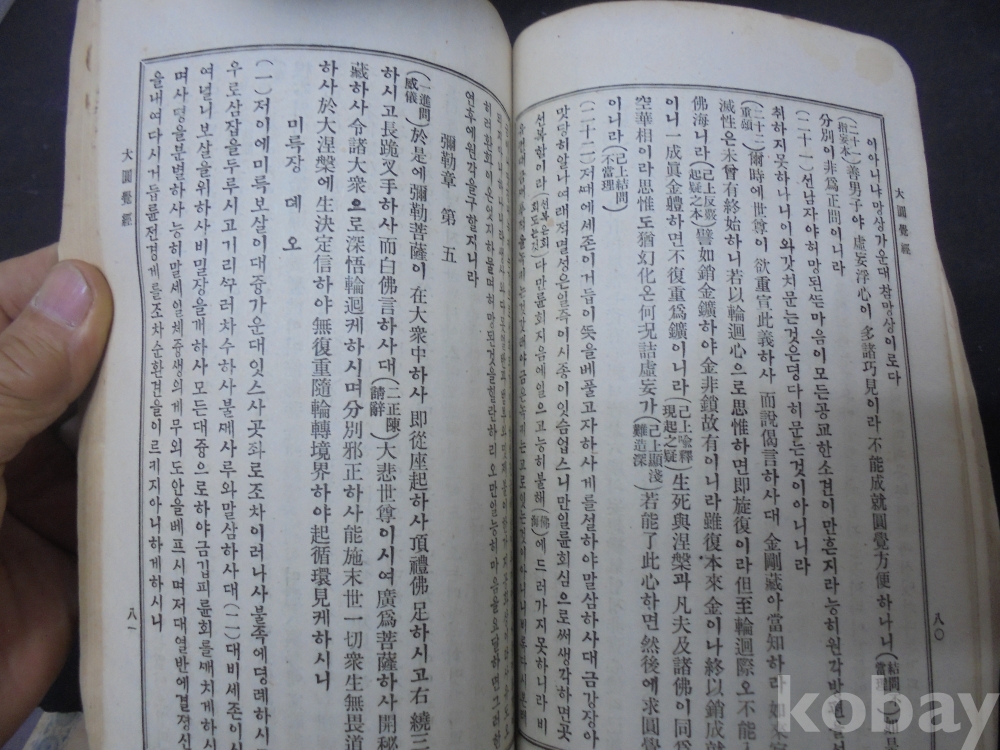 大圓覺經
八〇
이아니냐망상가운대찰망상이로다
(二十一指妄本)善男子야 虛妄浮心이 多諸巧見이라 不能成就圓覺方便하나니(結問
分別이 非爲正問이니라
(二十一)선남자야허망된뜬마음이모든공교한소견이만흔지라능히원각방편
취하지못하나니이와갓치문는것은뎡다히문든것이아니니라
(二十二重頌)爾時에 世尊이 欲重宣此義하사 而說偈言하사대 金剛藏아 當知하라
滅性은 未曾有終始하니 若以輪迴心으로 思惟하면 即旋復이라 但至輪迴際오 不能入
佛海니라(己上反覈起疑之本)譬如銷金鑛하야 金非銷故有이니라 雖復本來金이나 終以銷成
이니 一成眞金軆하면 不復重爲鑛이니라(己上喩釋現起之疑)生死與涅槃과 凡夫及諸佛이 同爲
空華相이라 思惟도 猶幻化온 何況詰虛妄가(己上顯淺難造深)若能了此心하면 然後에 求圓覺
이니라(己上結問不當理)
(二十二)저때에세존이거듭이뜻을베풀고자하사게를설하야말삼하사대금강장아
맛당히알나여래적멸성은일즉이시종이잇슴업스니만일륜회심으로써생각하면곳
선복함이라 다만륜회지음에일으고능히불해(佛海)에드러가지못하나라비
연후에원각을구할지니라
彌勒章 第五
(一進問威儀)於是에 彌勒菩薩이 在大衆中하사 即從座起하사 頂禮佛足하시고 右繞三
하시고 長跪叉手하사 而白佛言하사대(二正陳請辭)大悲世尊이시여 廣爲菩薩하사 開秘
藏하사 令諸大衆으로 深悟輪迴케하시며 分別邪正하사 能施末世一切衆生無畏道
하사 於大涅槃에 生決定信하야 無復重隨輪轉境界하야 起循環見케하시니
미륵장 뎨오
(一)저이에미륵보살이대중가운대잇스사곳좌로조차이러나사불족에뎡례하시고
우로삼잡을두루시고기리꾸러차수하사불째사루와말삼하사대(二)대비세존이시
여널니보살을위하사비밀장을개하사모든대중으로하야금깁피륜회를깨치게하시
며사뎡을분별하사능히말세일체중생의게무외도안을베프시며저대열반에결정신
을내여다시거듭륜전경계를조차순환견을이르키지아니하게하시니
大圓覺經
八一
kobay